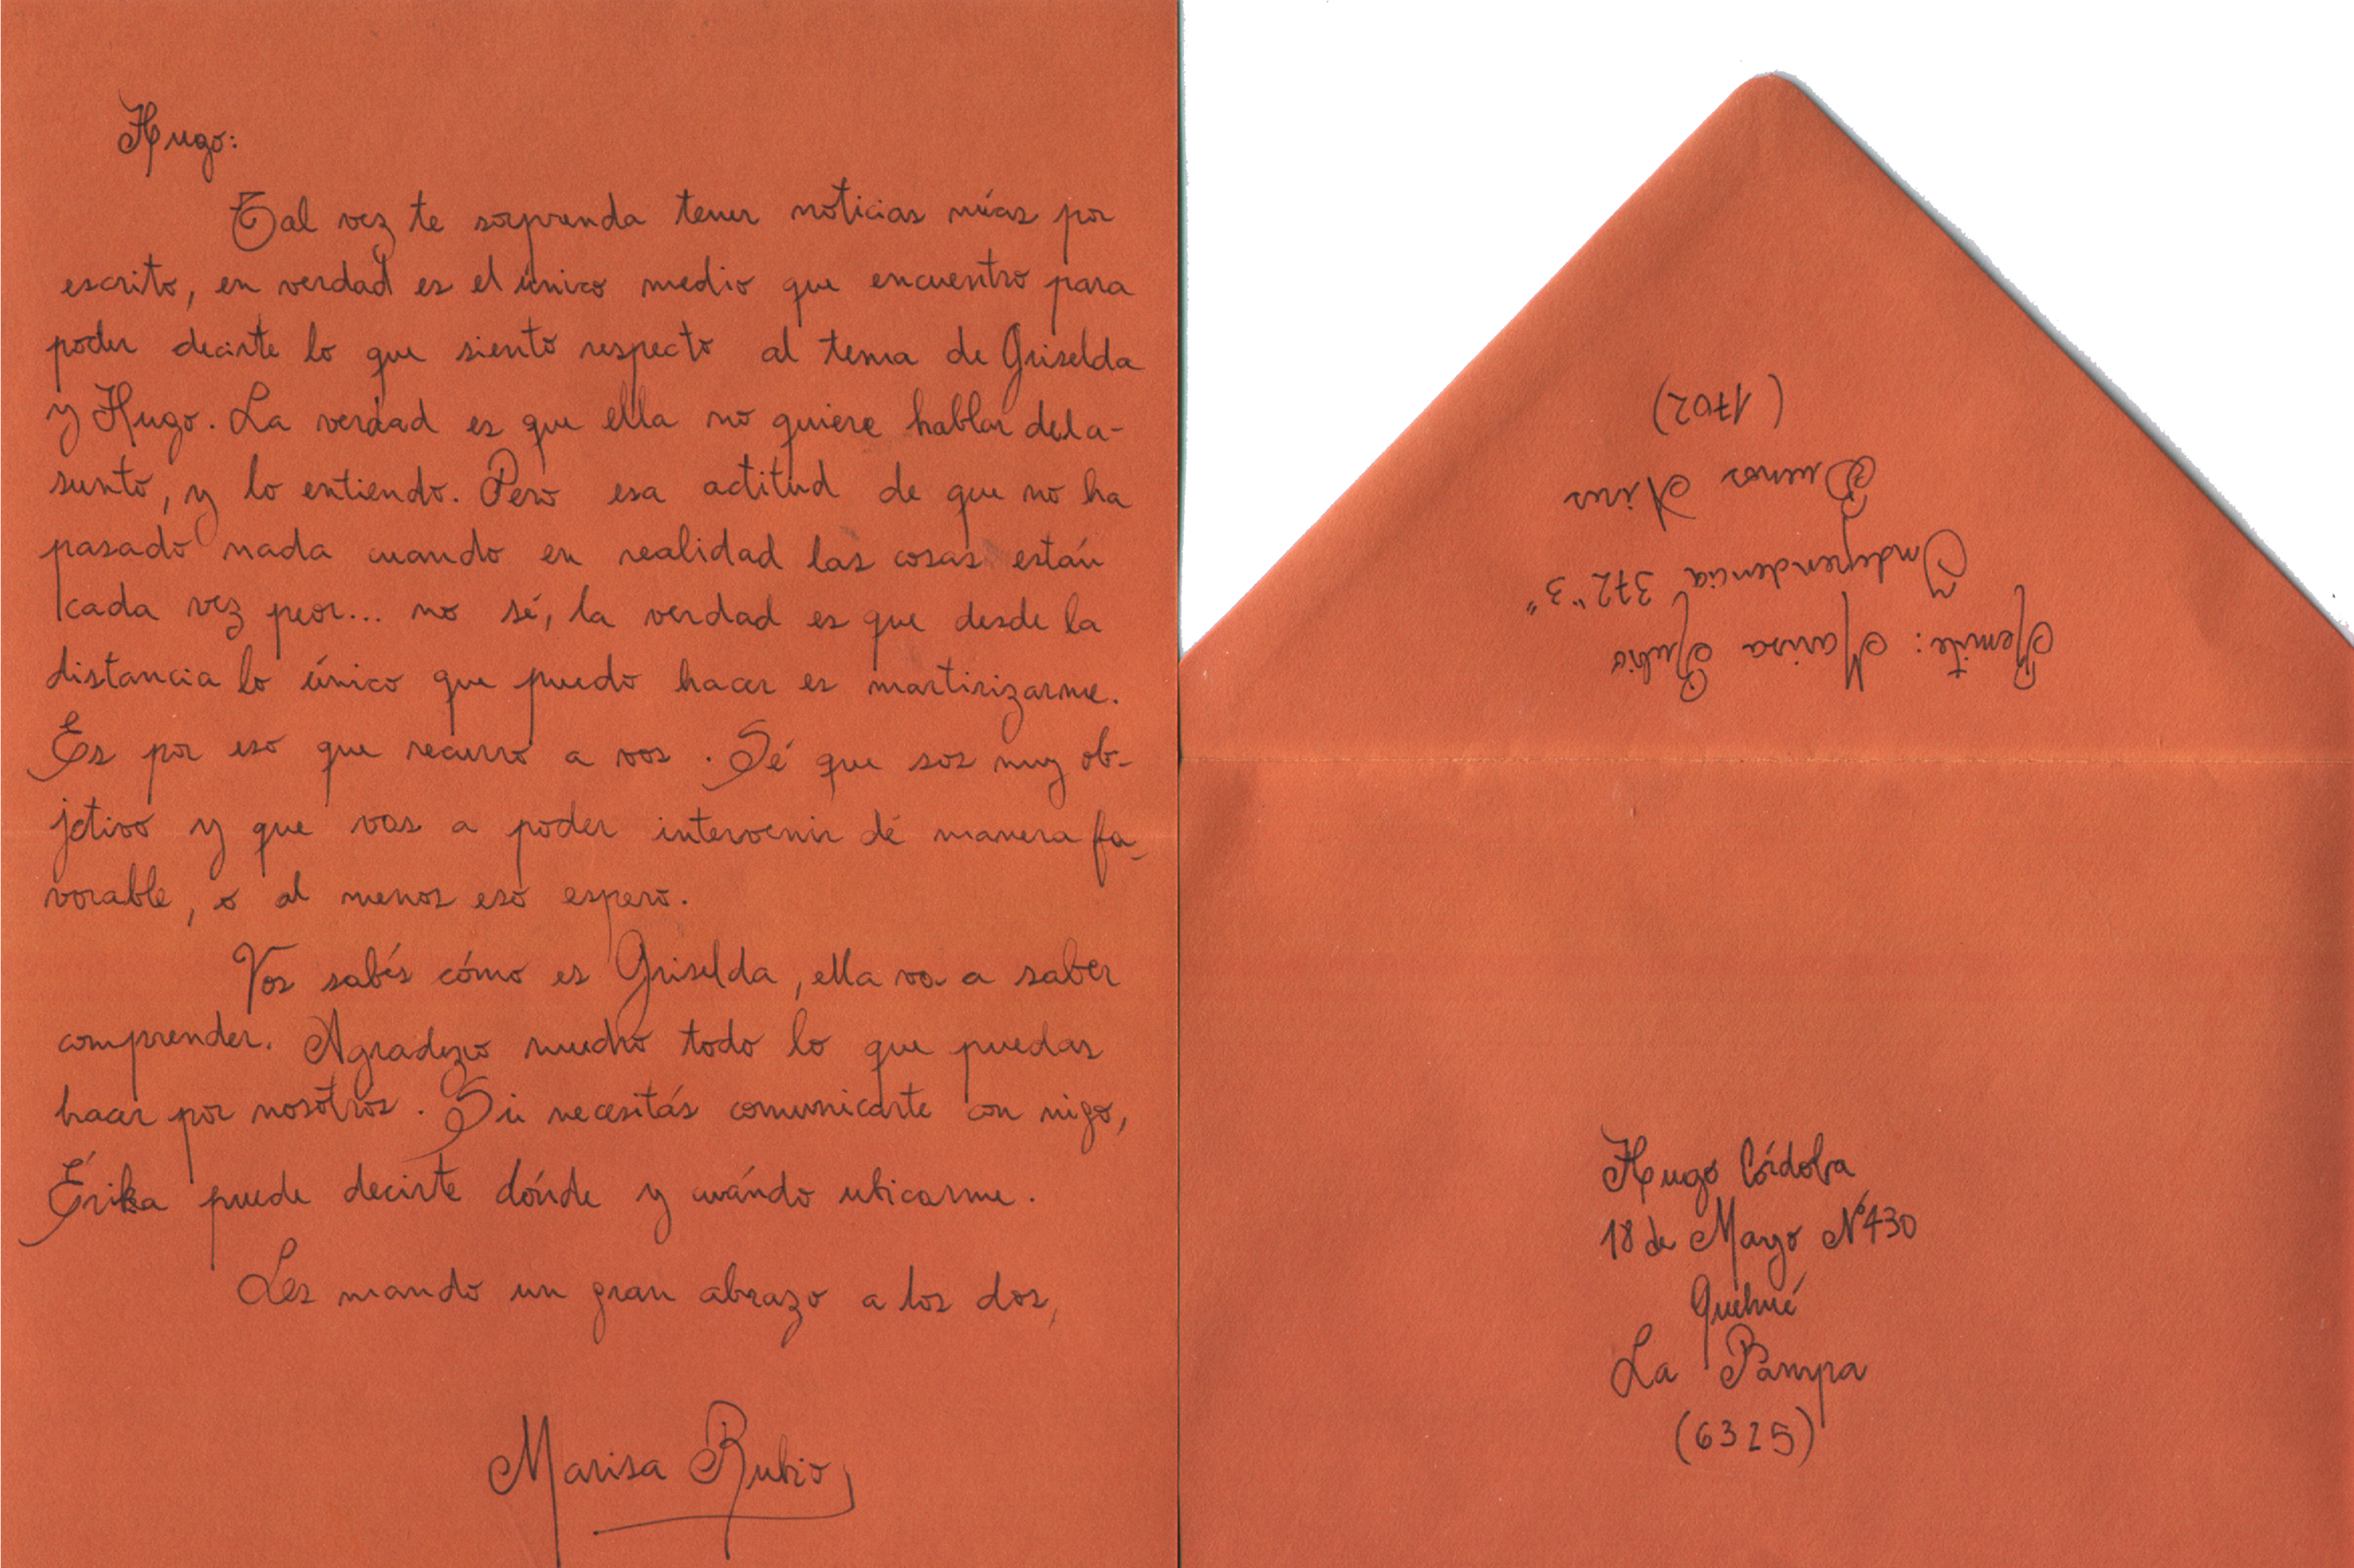 Hugo:
Tal vez te sorprenda tener noticias mías por
escrito, en verdad es el único medio que encuentro para
poder decirte lo que siento respecto al tema de Griselda
y Hugo. La verdad es que ella no quiere hablar del a-
sunto, y lo entiendo. Pero esa actitud de que no ha
pasado nada cuando en realidad las cosas están
cada vez peor... no sé, la verdad es que desde la
distancia lo único que puedo hacer es martirizarme.
Es por eso que recurro a vos. Sé que sos muy ob-
jetivo y que vas a poder intervenir de manera fa-
vorable, o al menos eso espero.
Vos sabés cómo es Griselda, ella va a saber
comprender. Agradezco mucho todo lo que puedas
hacer por nosotros. Si necesitás comunicarte con migo,
Érika puede decirte dónde y cuándo ubicarme.
Les mando un gran abrazo a los dos,
Marisa Rubio
Remite: Marisa Rubio
Independencia 372 "3"
Buenos Aires
(1702)
Hugo Córdoba
18 de Mayo Nº430
Quehué
La Pampa
(6325)